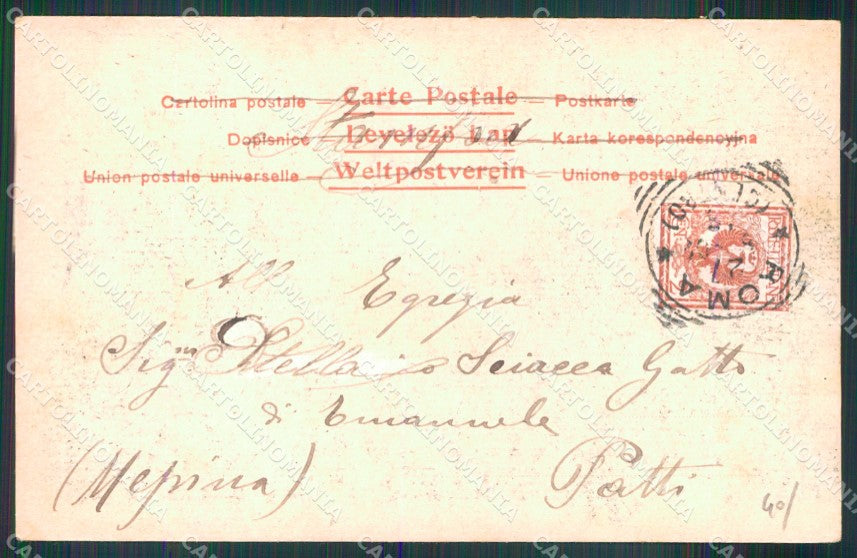 Cartolina postale — Carte Postale — Postkarte
Dopisnice — Levelező Lap — Karta korespondencyjna
Union postale universelle — Weltpostverein — Unione postale universale
Stampa
ROMA
(CENTRO)
All Egregia
Sig.na Stellario Sciacca Gatto
di Emanuele
(Messina) Patti
40/
CARTOLINOMANIA